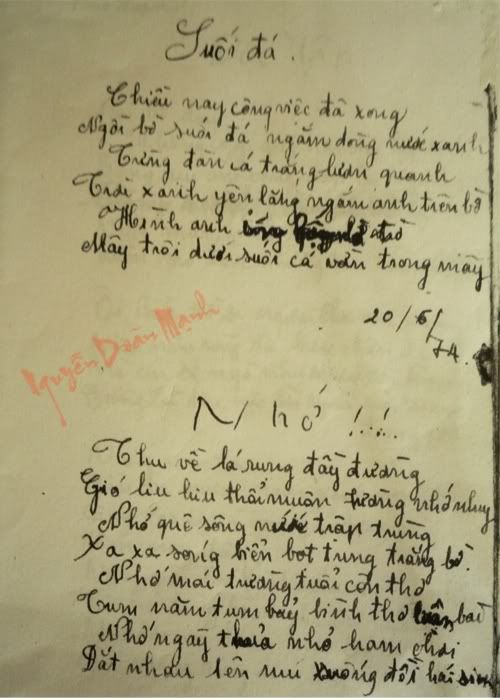 Suối đá.
Chiều nay công việc đã xong
Ngồi bờ suối đá ngắm dòng nước xanh
Từng đàn cá trắng lượn quanh
Trời xanh yên lặng ngắm anh trên bờ
Hình anh bóng
Mây trôi dưới suối cá vờn trong mây
20/6/74.
Nguyễn Doãn Mạnh
Nhớ !...
Thu về lá rụng đầy đường
Gió liu hiu thổi muôn nhớ nhung
Nhớ quê sông nước trập trùng
Xa xa sóng biển bọt tung trắng bờ.
Nhớ mái trường tuổi còn thơ
Tụm năm tụm bảy bình thơ luận bài
Nhớ ngày thủa nhỏ ham chơi
Dắt nhau lên núi xuống đồi hái sim